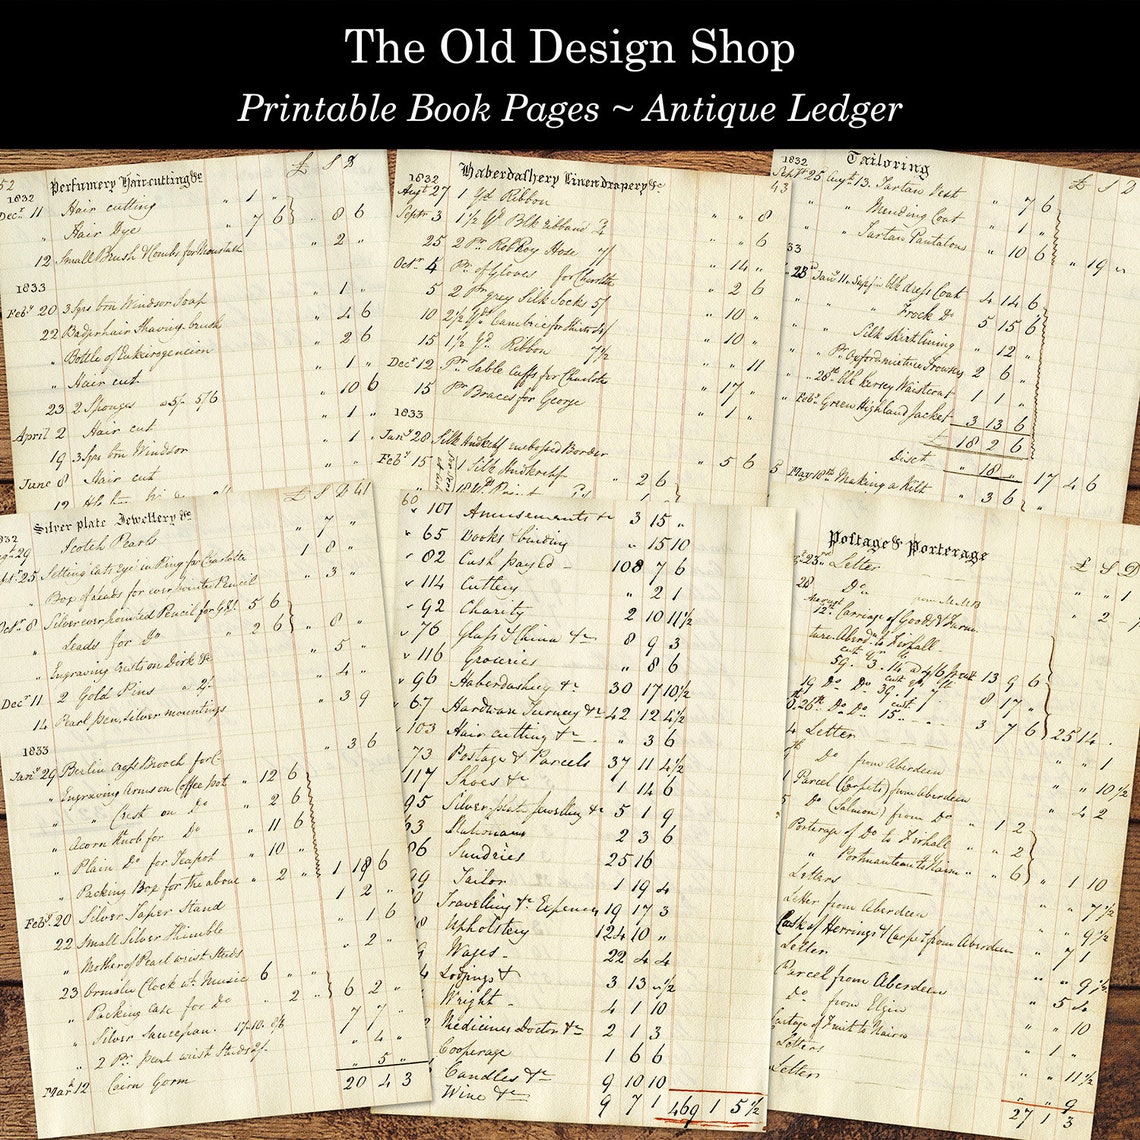 The Old Design Shop
Printable Book Pages ~ Antique Ledger
52 Perfumery Haircutting &c £ S D
1832
Decr 11 Hair cutting " 1 "
" Hair Dye " 7 6 " 8 6
12 Small Brush & Combs for Moustache " 2 "
1833
Feby 20 3 sqs brn Windsor Soap " 1 "
22 Badgerhair Shaving brush " 4 6
" Bottle of Eukeirogeneion " 2 6
" Hair cut. " 1 "
23 2 Sponges a 5/- 5/6 " 10 6
April 2 Hair cut " 1 "
19 3 sqs brn Windsor " 1 "
June 8 Hair cut
12
Haberdashery Linendrapery &c
1832
Augt 27 1 Yd Ribbon " " 8
Septr 3 1½ Yd Blk ribband " " 6
25 2 Pr Rob Roy Hose 7/ " 14 "
Octr 4 Pr of Gloves for Charlotte " 2 6
5 2 Pr grey Silk Socks 5/ " 10 "
10 2½ Yds Cambric for Shirts 4/ " 10 "
15 1½ Yd Ribbon 7½ " " 11
Decr 12 Pr Sable Cuffs for Charlotte " 17 "
15 Pr Braces for George " 1 "
1833
Jany 28 Silk Hndkrchf embossed Border " 5 6
Feby 15 1 Silk Hndkrchf " 2 6
Tailoring £ S D
1832
Septr 25 Augt 13. Tartan Vest " 7 6
43 " " Mending Coat " 1 "
" " Tartan Pantaloons " 10 6 " 19 "
33
" 28 Jany 11. Superfine blk dress Coat 4 14 6
" " Frock Do 5 15 6
" " Silk Skirt lining " 12 "
" " Pr Oxford mixture Trowsers 2 6 "
" 28th Blk kersey Waistcoat 1 1 "
" Feby Green Highland Jacket 3 13 6
£ 18 2 6
Disct " 18 " 17 4 6
May 18th Making a Kilt " 3 6
Silver plate Jewellery &c £ S D 41
Scotch Pearls " 7 "
29
25 Setting Cats Eye in Ring for Charlotte 1 8 "
" Box of Leads for ever pointed Pencil " 3 "
Octr 8 Silver ever pointed Pencil for G&J. 5 6
" Leads for Do " 2 6 " 8 "
" Engraving Crests on Dirk &c " 5 "
Decr 11 2 Gold Pins a 2/. " 4 "
14 Pearl Pen, silver mountings " 3 9
1833
Jany 29 Berlin Craft Brooch for C. " 3 6
" Engraving Arms on Coffee pot " 12 6
" " Crest on Do " 2 6
" Acorn Knob for Do " 11 6
" Plain Do for Teapot " 10 "
" Packing Box for the above " 2 " 1 18 6
Feby 20 Silver Taper Stand 1 2 "
22 Small Silver Thimble " 1 6
" Mother of Pearl wrist Studs " 2 "
23 Ormolu Clock wt Music 6 " "
" Packing Case for Do " 2 " 6 2 "
" Silver Saucepan. 7 7 "
" 2 Pr Pearl wrist Studs 2/. " 4 "
Mar 12 Cairn Gorm " 5 "
20 4 3
60
" 101 Amusements &c 3 15 "
" 65 Books & binding " 15 10
" 82 Cash payed - 108 7 6
" 114 Cutlery " 2 1
" 92 Charity 2 10 11½
" 76 Glass & China &c 8 9 3
" 116 Groceries " 8 6
" 96 Haberdashery &c 30 17 10½
" 67 Hardware Turnery &c 42 12 4½
" 103 Hair cutting &c " 3 6
73 Postage & Parcels 37 11 4½
117 Shoes &c 1 14 6
95 Silver-plate jewellery &c 5 1 9
63 Stationary 2 3 6
86 Sundries 25 16
99 Tailor 1 19 4
Travelling & Expences 19 17 3
Upholstery 124 10 "
Wages. 22 4 4
Lodgings &c 3 13 "½
Wright 4 1 10
Medicines Doctor &c 2 1 3
Cooperage 1 6 6
Candles &c 9 10 10
Wine &c 9 7 1 469 1 5½
Postage & Porterage £ S D
23rd Letter " " 1
28 Do " 2 -
August 12th Carriage of Goods & Furni-
ture Abrdn to Firhall.
59. 3. 14 a 4/6 pr cwt 13 9 6
19 Do Do 39. 1. 7 8 17 "
26th Do Do 15 " - - 3 7 6 25 14 .
4 Letter " " 1
Do from Aberdeen " " 10½
Parcel (Carpets) from Aberdeen " 4 2
Do (Salmon) from Do " 1 2
Porterage of Do to Firhall " " 2
" Portmanteau to Nairn " " 6 " 1 10
Letters " " 7½
Letter from Aberdeen " " 9½
Cask of Herrings & Carpet from Aberdeen " 7 1
Letter " " 9½
Parcel from Aberdeen " 5 4
Do from Elgin " " 10
Cartage of Fruit to Nairn " 1 "
Letters " " 11½
Letter " " 9
27 1 3